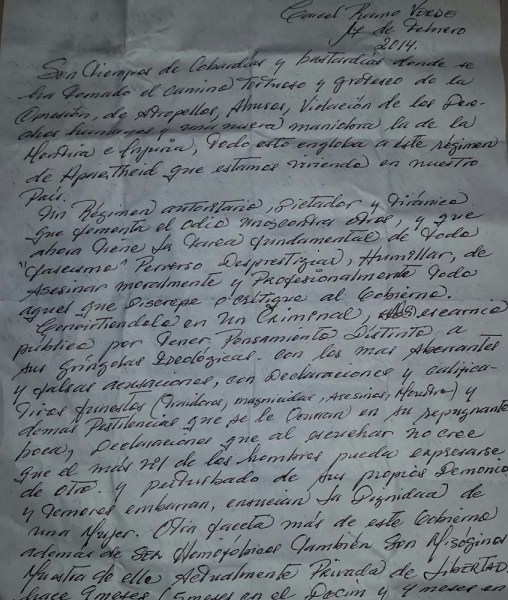 Carcel Ramo VERDE
14 de Febrero
2014.
Son Tiempos de Cobardías y bastardías donde se
ha tomado el camino Tortuoso y grotesco de la
Omisión, de Atropellos, Abusos, Violación de los Dere-
chos humanos y una nueva maniobra la de la
Mentira e Injuria, Todo esto engloba a este régimen
de Apartheid que estamos viviendo en nuestro
País.
Un Régimen autoritario, Dictador y Tiránico
que fomenta el odio unos contra otros, y que
ahora Tiene la Tarea fundamental de Todo
"fascismo" Perverso Desprestigiar, Humillar, de
Asesinar moralmente y Profesionalmente Todo
aquel que Discrepe o castigue al Gobierno.
Convirtiendolo en Un Criminal, escarnio
público por Tener Pensamiento Distinto a
sus Gríngolas Ideológicas. con las mas Aberrantes
y falsas acusaciones, con Declaraciones y califica-
Tivos funestos (Asesinos, Monstruo) y
demas Pestilencias que se le Ocurran en su repugnante
boca, Declaraciones que al escuchar no cree
que el más vil de los hombres pueda expresarse
de otro. y perturbado de sus propios Demonios
y Temores embarran, ensucian la Dignidad de
una Mujer. Otra faceta más de este Gobierno
además de SER Homofóbicos También Son Misóginos
Muestra de ello Actualmente Privada de LIBERTAD
hace 9 meses (5 meses en el Docim y 4 meses en